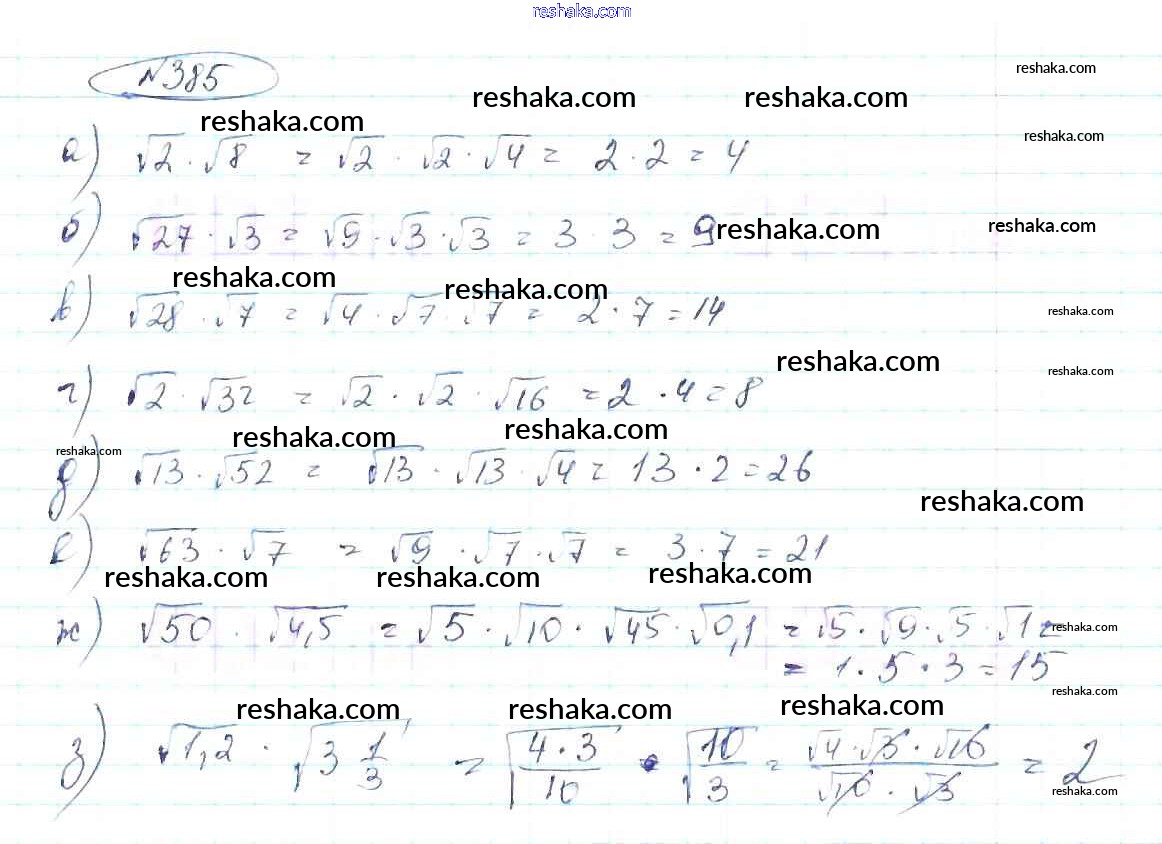 reshaka.com
№385
reshaka.com
reshaka.com reshaka.com
reshaka.com
reshaka.com
а) √2 · √8 = √2 · √2 · √4 = 2 · 2 = 4
б) √27 · √3 = √9 · √3 · √3 = 3 · 3 = 9
reshaka.com
reshaka.com
reshaka.com
reshaka.com
в) √28 · √7 = √4 · √7 · √7 = 2 · 7 = 14
reshaka.com
reshaka.com
reshaka.com
г) √2 · √32 = √2 · √2 · √16 = 2 · 4 = 8
reshaka.com
reshaka.com
reshaka.com
д) √13 · √52 = √13 · √13 · √4 = 13 · 2 = 26
reshaka.com
е) √63 · √7 = √9 · √7 · √7 = 3 · 7 = 21
reshaka.com reshaka.com reshaka.com
ж) √50 · √4,5 = √5 · √10 · √45 · √0,1 = √5 · √9 · √5 · √1 =
reshaka.com
= 1 · 5 · 3 = 15
reshaka.com
reshaka.com reshaka.com reshaka.com
з) √1,2 · √3 1/3 = √(4 · 3/10) · √(10/3) = √4 · √3 · √10 / √10 · √3 = 2
reshaka.com